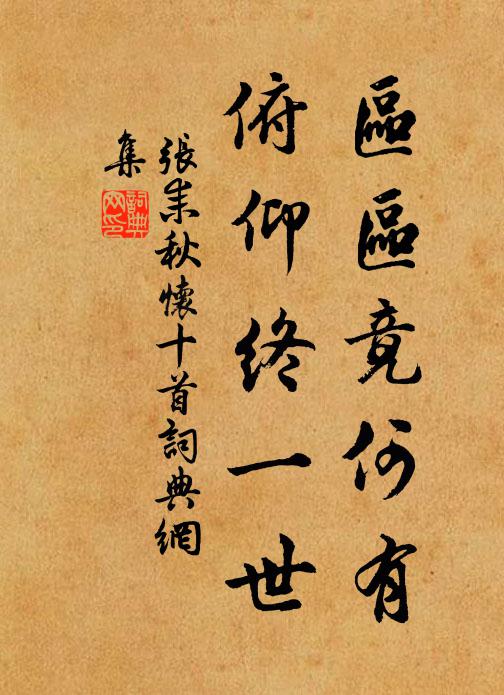 區區竟何有
俯仰終一世
張耒秋懷十首詞典網
集
詞典
网印